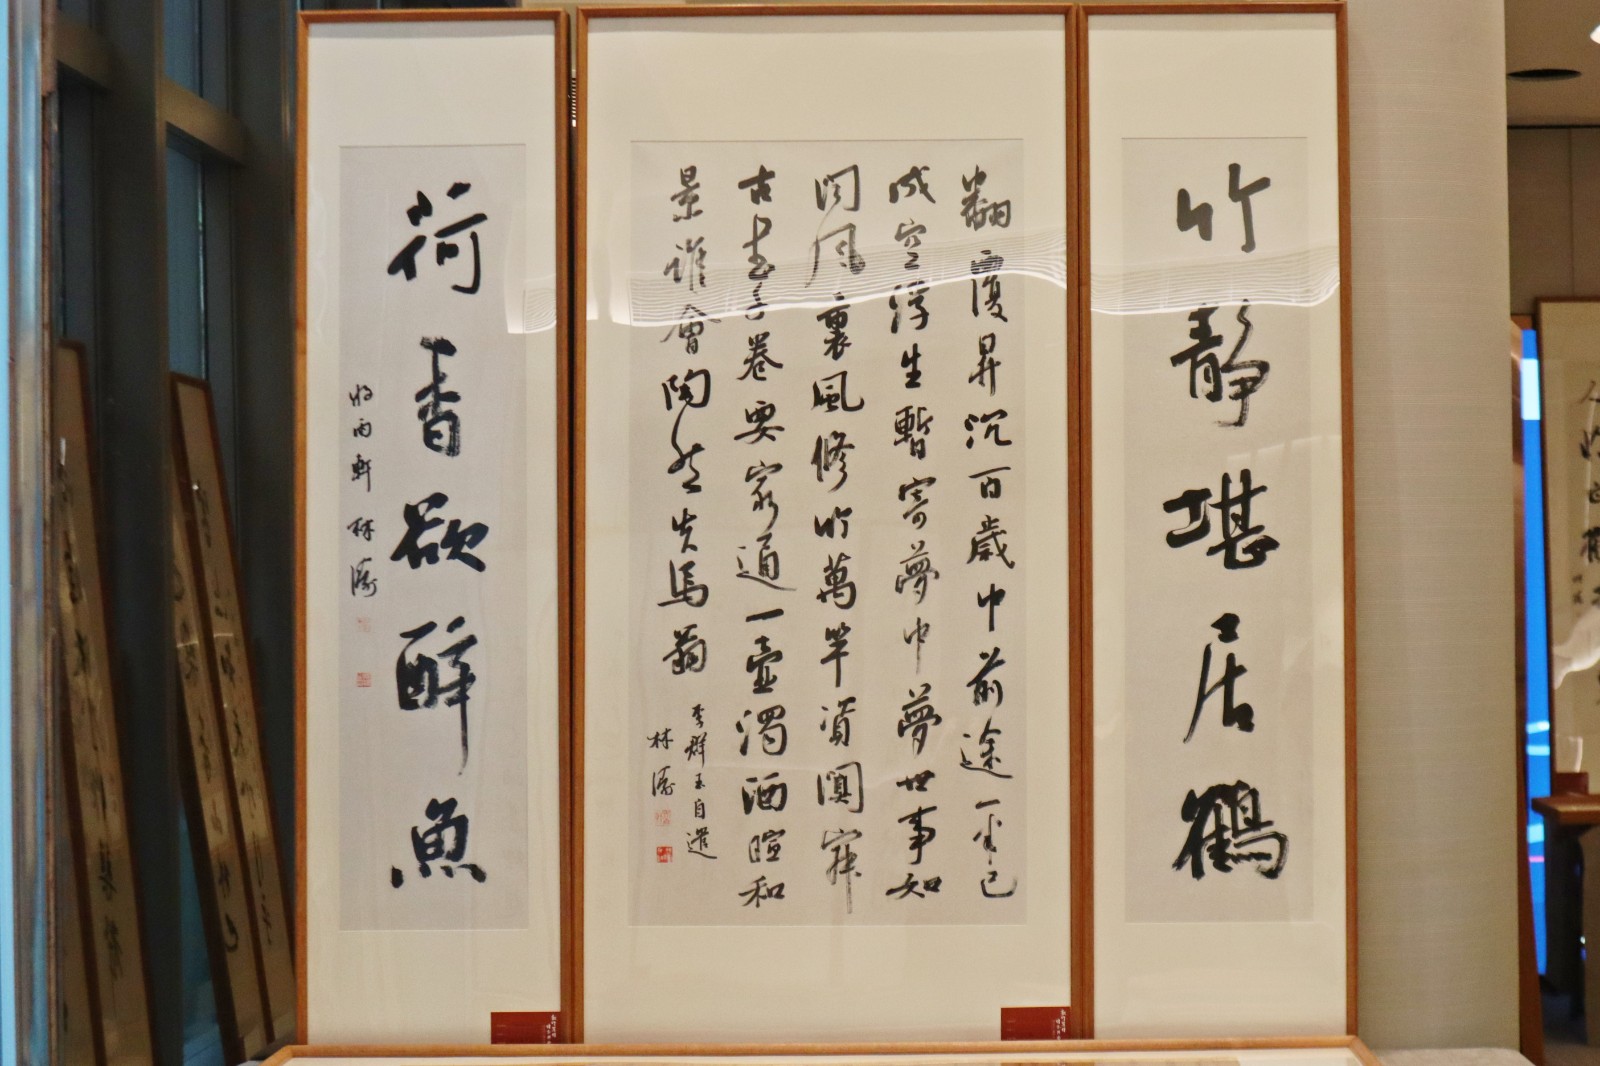 竹靜堪居鶴
翻覆昇沉百歲中前途一半已
成空浮生暫寄夢中夢世事如
聞風裏風修竹萬竿資闃寂
古書千卷要窮通一壺濁酒暄和
景誰會陶然失馬翁
李群玉自遣
林濤
荷香欲醉魚
雨軒 林濤